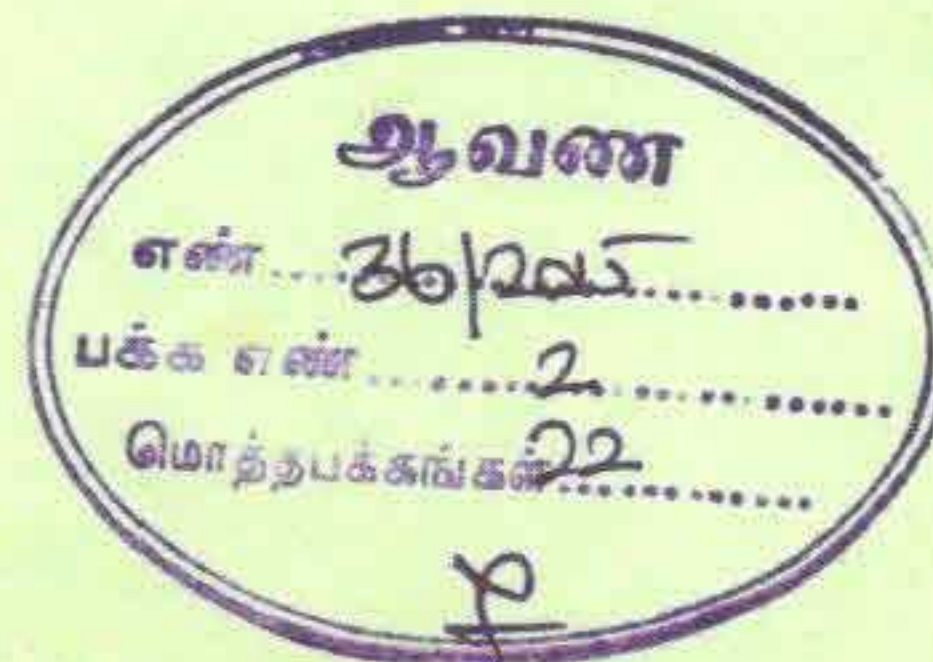 ஆவண
எண் ........ 36/2015 ........
பக்க எண் ........ 2 ........
மொத்தபக்கங்கள் 22 ........